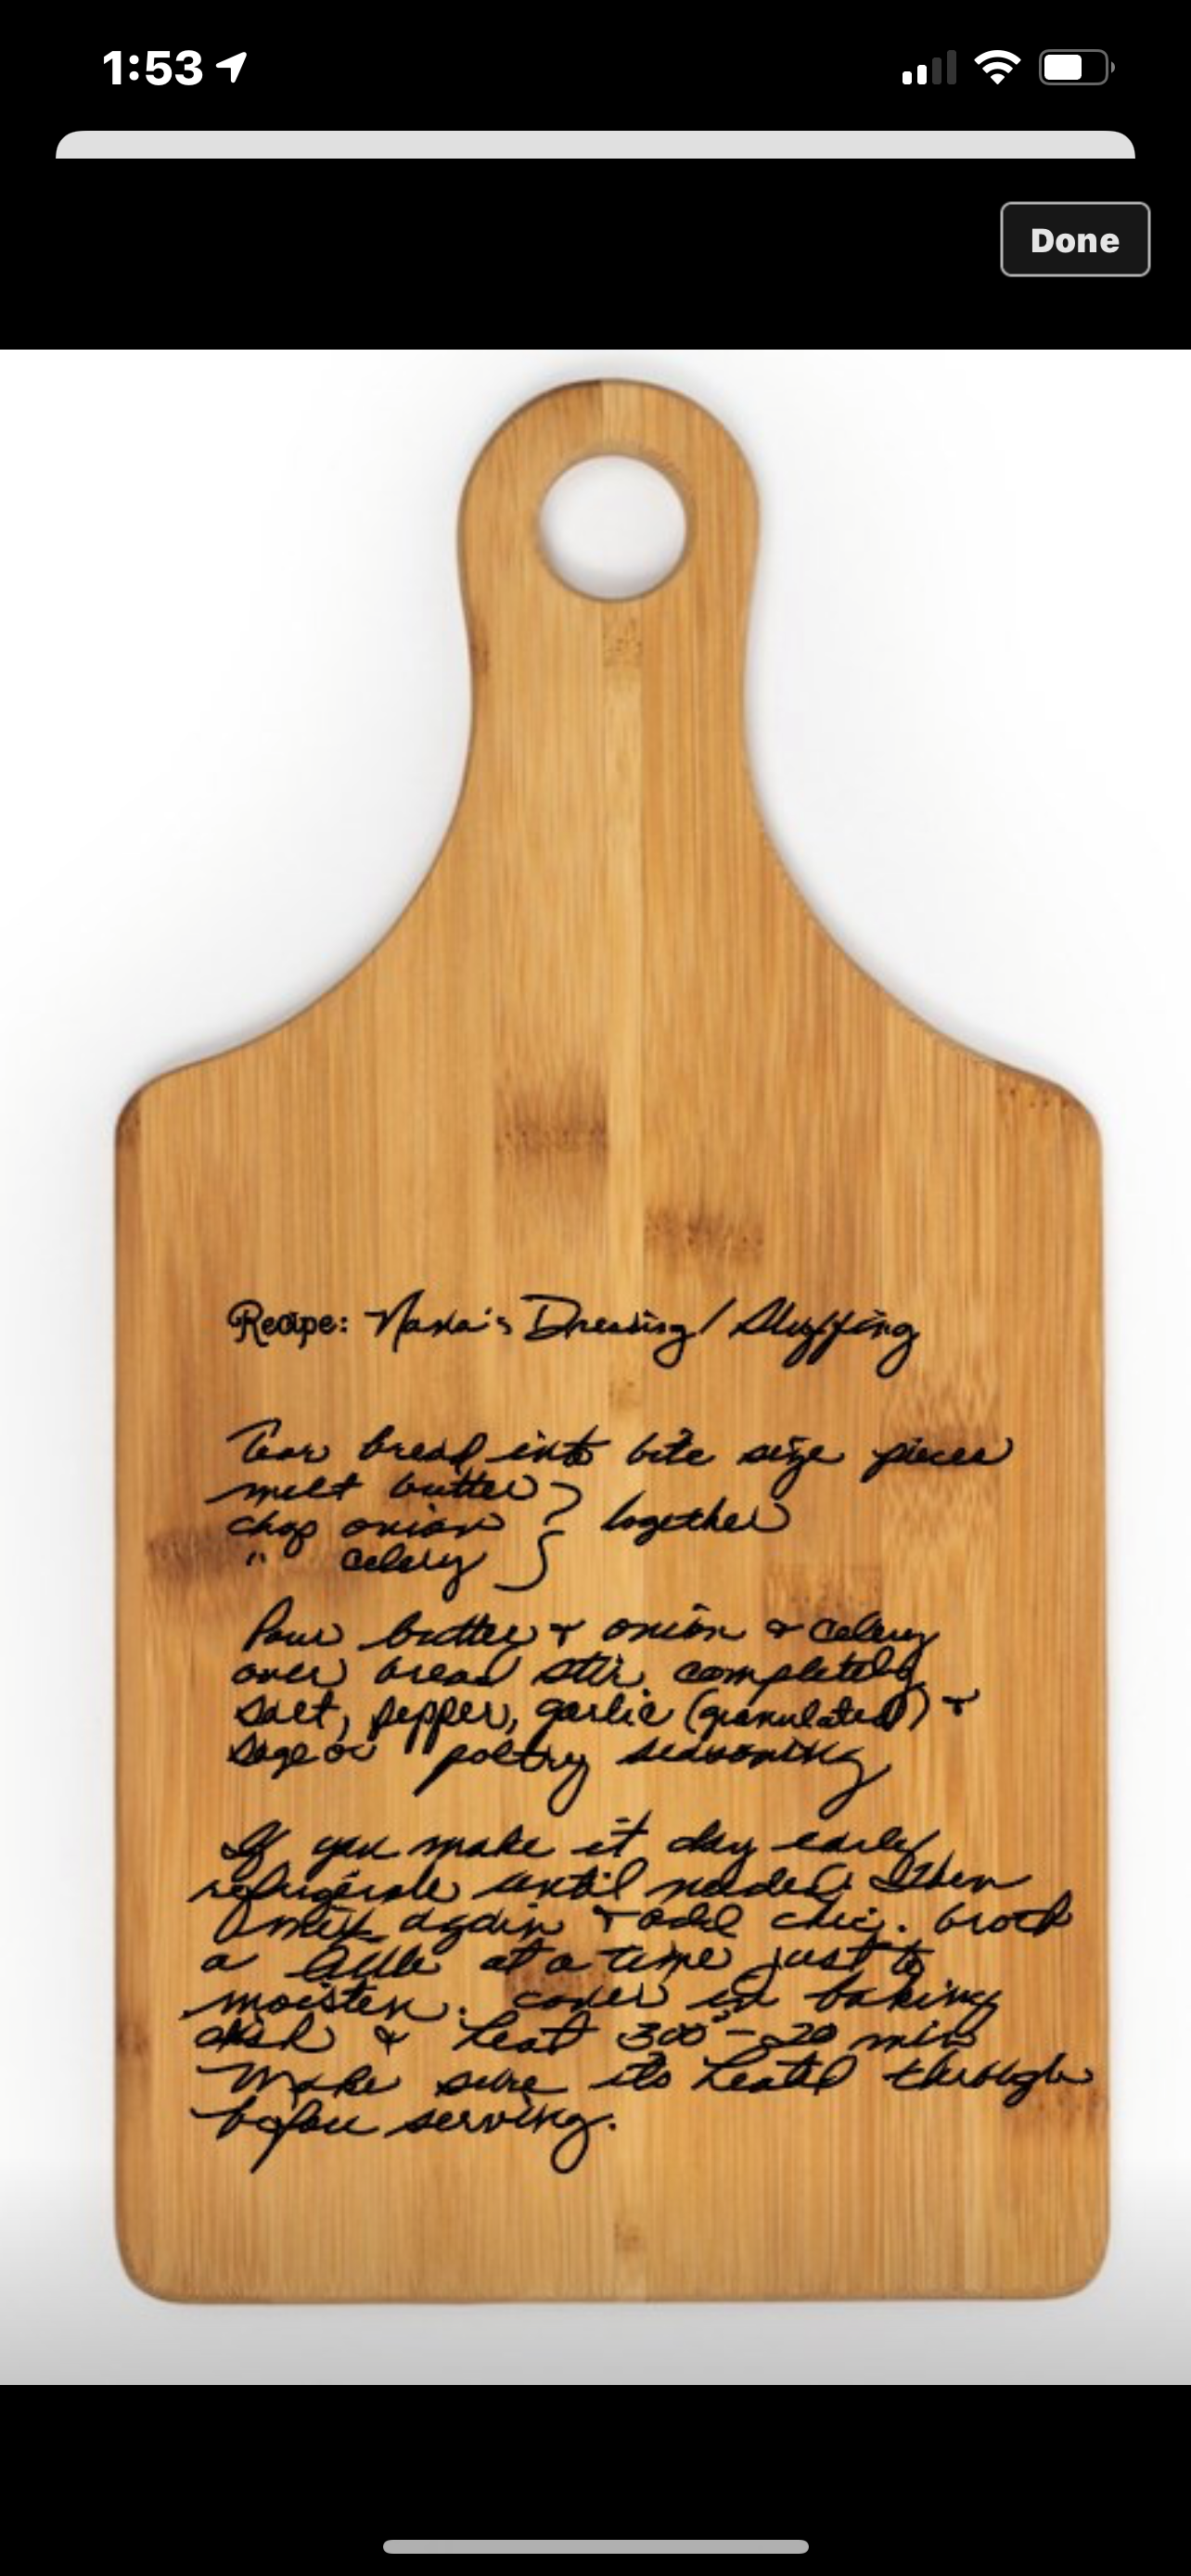 1:53
Done
Recipe: Nana's Dressing / Stuffing
Tear bread into bite size pieces
melt butter
chop onion } together
" celery
Pour butter & onion & celery
over bread stir completely
salt, pepper, garlic (granulated) &
sage or poltry seasoning
If you make it day early
refrigerate until needed. Then
mix again & add chic. broth
a little at a time just to
moisten. cover in baking
dish & heat 300° - 20 min
Make sure its heated through
before serving.